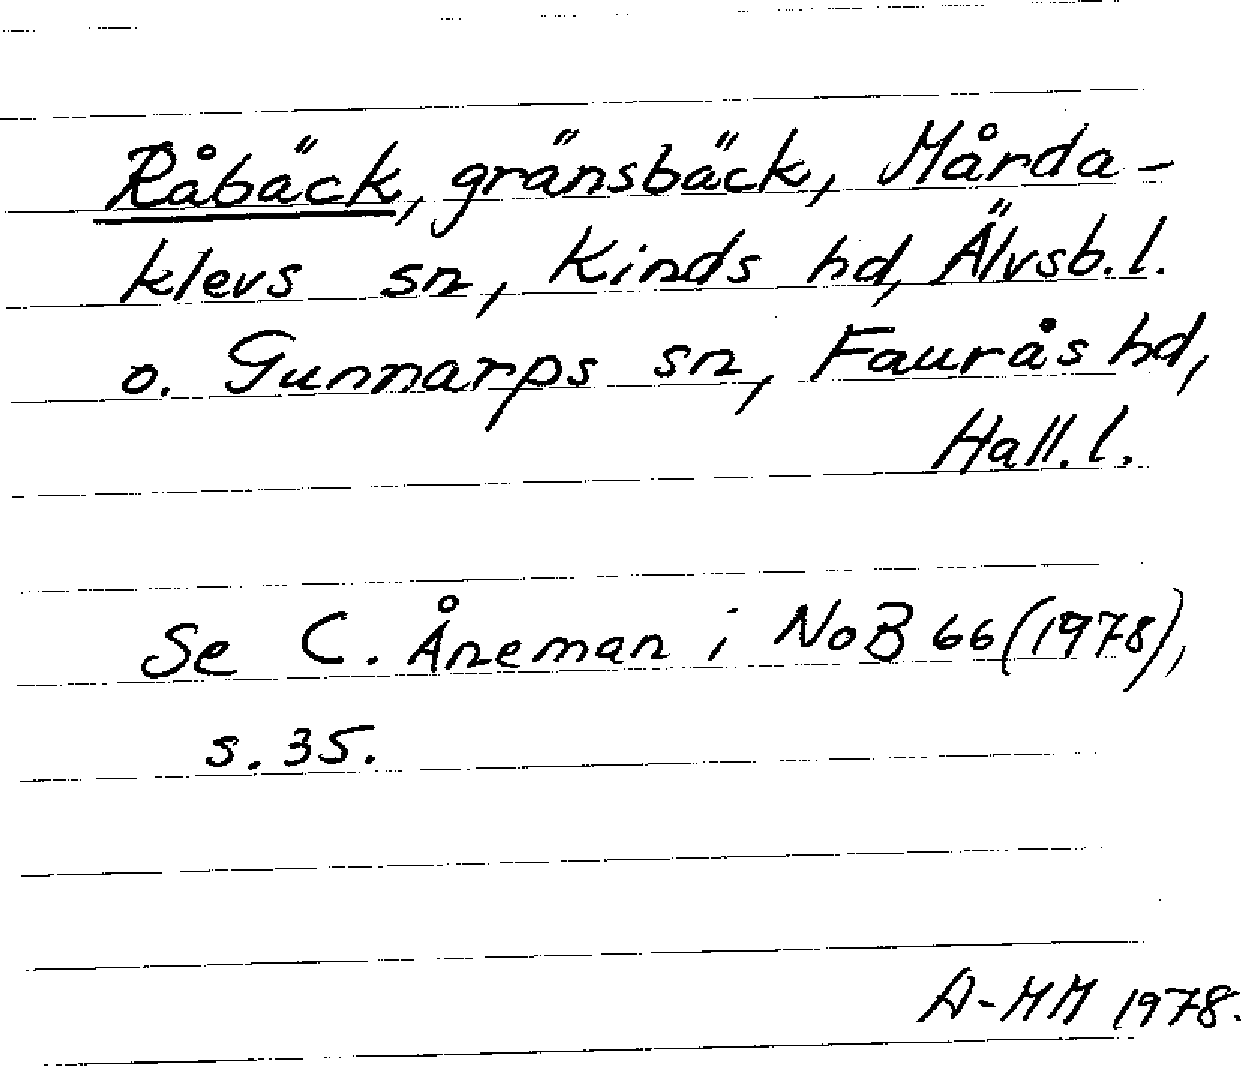 Råbäck, gränsbäck, Mårda-
klevs sn, Kinds hd, Älvsb.l.
o. Gunnarps sn, Faurås hd,
Hall.l.
Se C. Åneman i NoB 66(1978),
s. 35.
A-MM 1978.